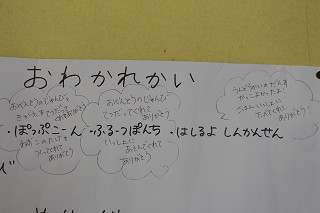 おわかれかい
おべんとうのじゅんび
てつだってくれて
ありがとう
おべんとうのじゅんびを
ありがとう
うんどうかいのだんす
かっこよかったよ!
ごはんいっしょに
たべてくれて
ありがとう!
・ぽっぷこーん ・ふるーつぽんち ・はしるよ しんかんせん
つくってくれて
ありがとう
いっしょに
あそんでくれて
ありがとう